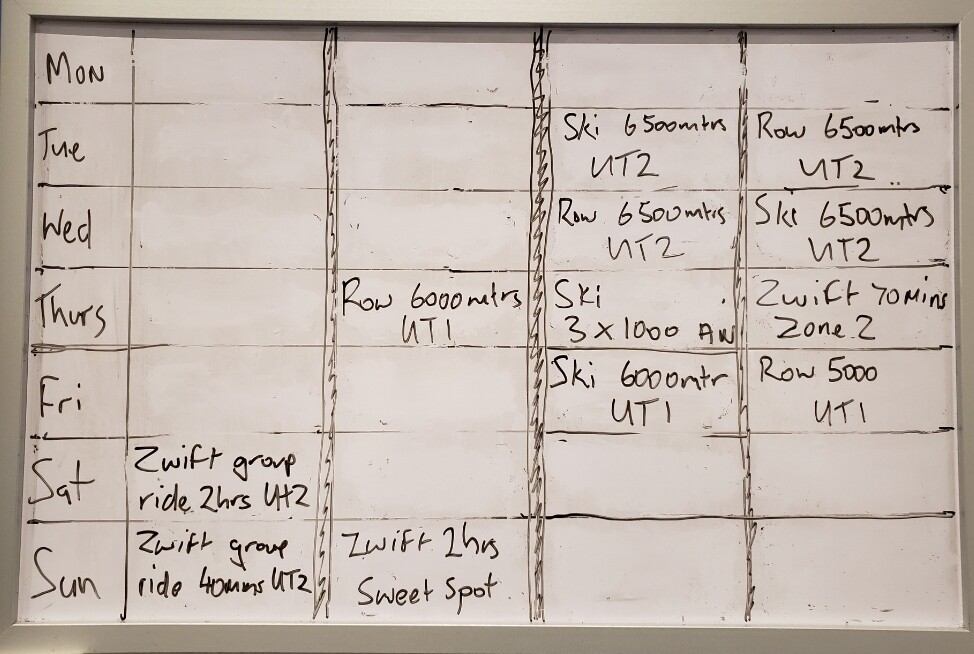 Mon
Tue
Ski 6500mtrs
UT2
Row 6500mtrs
UT2
Wed
Row 6500mtrs
UT2
Ski 6500mtrs
UT2
Thurs
Row 6000mtrs
UT1
Ski
3 x 1000 AN
Zwift 70mins
Zone 2
Fri
Ski 6000mtr
UT1
Row 5000
UT1
Sat
Zwift group
ride 2hrs Ut2
Sun
Zwift group
ride 40mins UT2
Zwift 2hrs
Sweet Spot